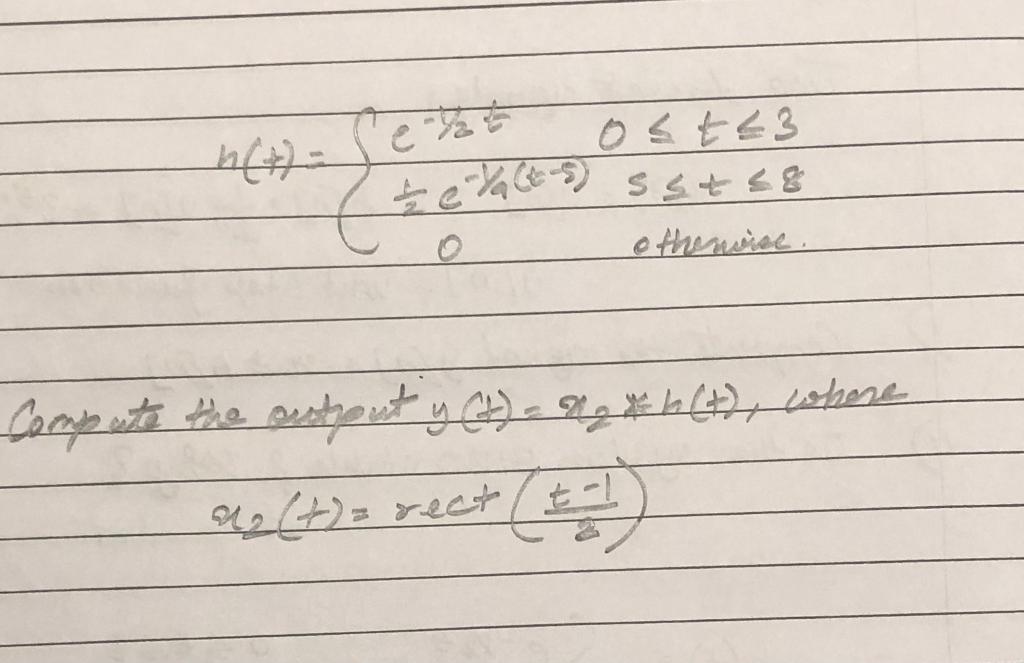 h(t) = { e^{-1/2 t} 0 ≤ t ≤ 3
1/2 e^{-1/4(t-5)} 5 ≤ t ≤ 8
0 otherwise.
Compute the output y(t) = x_2 * h(t), where
x_2(t) = rect((t-1)/2)